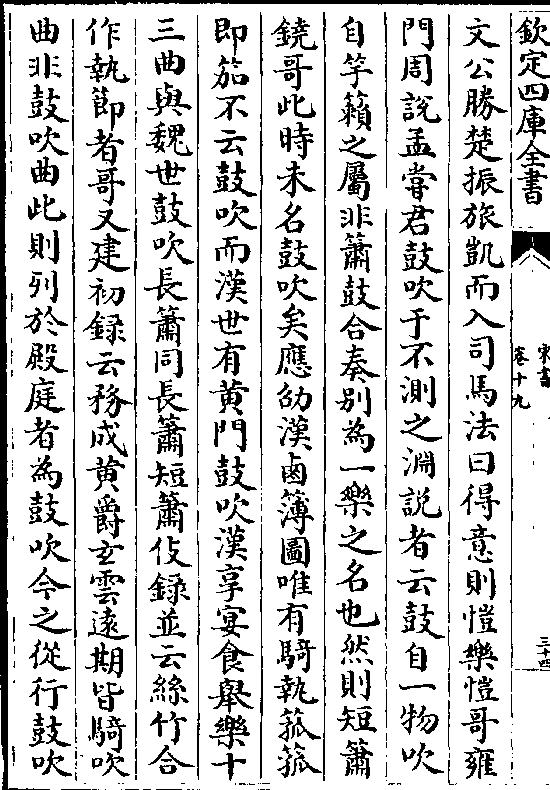 欽定四庫全書
宋書
卷十九
三十四
文公勝楚振旅凱而入司馬法曰得意則愷樂愷哥雍
門周說孟嘗君鼓吹于不測之淵說者云鼓自一物吹
自竽籟之屬非簫鼓合奏别為一樂之名也然則短簫
鐃哥此時未名鼓吹矣應劭漢鹵簿圖唯有騎執菰菰
即笳不云鼓吹而漢世有黄門鼓吹漢享宴食舉樂十
三曲與魏世鼓吹長簫同長簫短簫伎録並云絲竹合
作執節者哥又建初録云務成黄爵玄雲遠期皆騎吹
曲非鼓吹曲此則列於殿庭者為鼓吹今之從行鼓吹